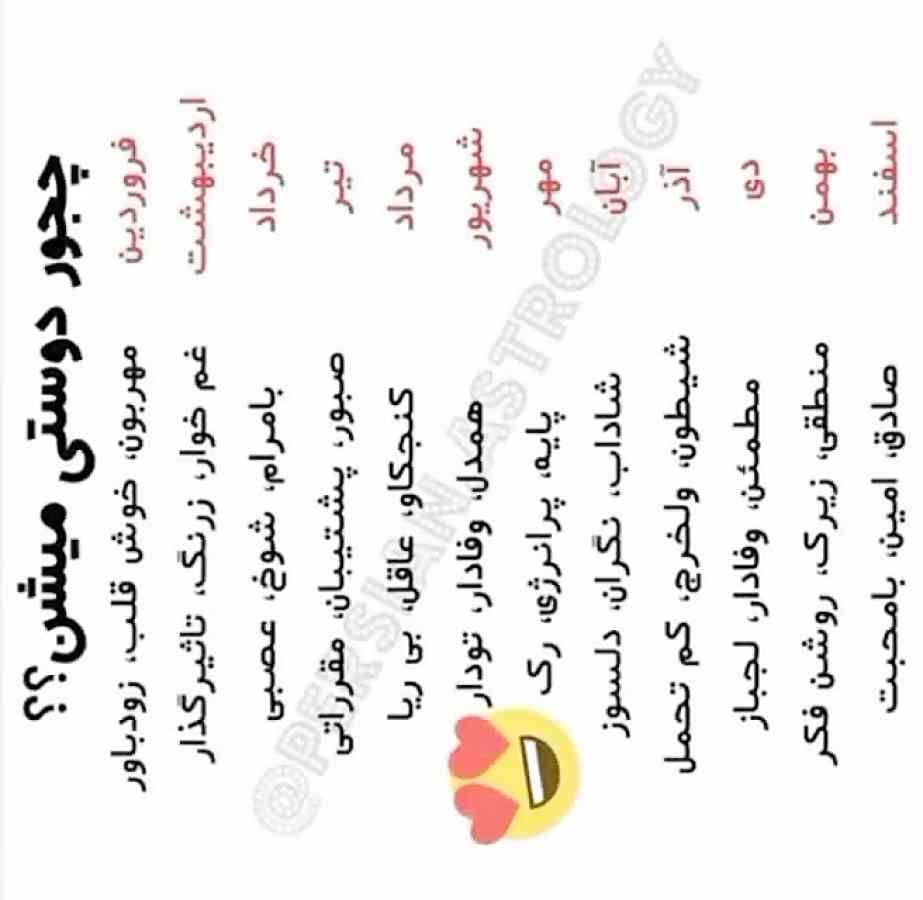 چجور دوستی میشن؟؟
فروردین مهربون، خوش قلب، زودباور
اردیبهشت غم خوار، زرنگ، تاثیرگذار
خرداد بامرام، شوخ، عصبی
تیر صبور، پشتیبان، مقرراتی
مرداد کنجکاو، عاقل، بی ریا
شهریور همدل، وفادار، تودار
مهر پایه، پرانرژی، رک
آبان شاداب، نگران، دلسوز
آذر شیطون، ولخرج، کم تحمل
دی مطمئن، وفادار، لجباز
بهمن منطقی، زیرک، روشن فکر
اسفند صادق، امین، بامحبت
@PERSIAN.ASTROLOGY